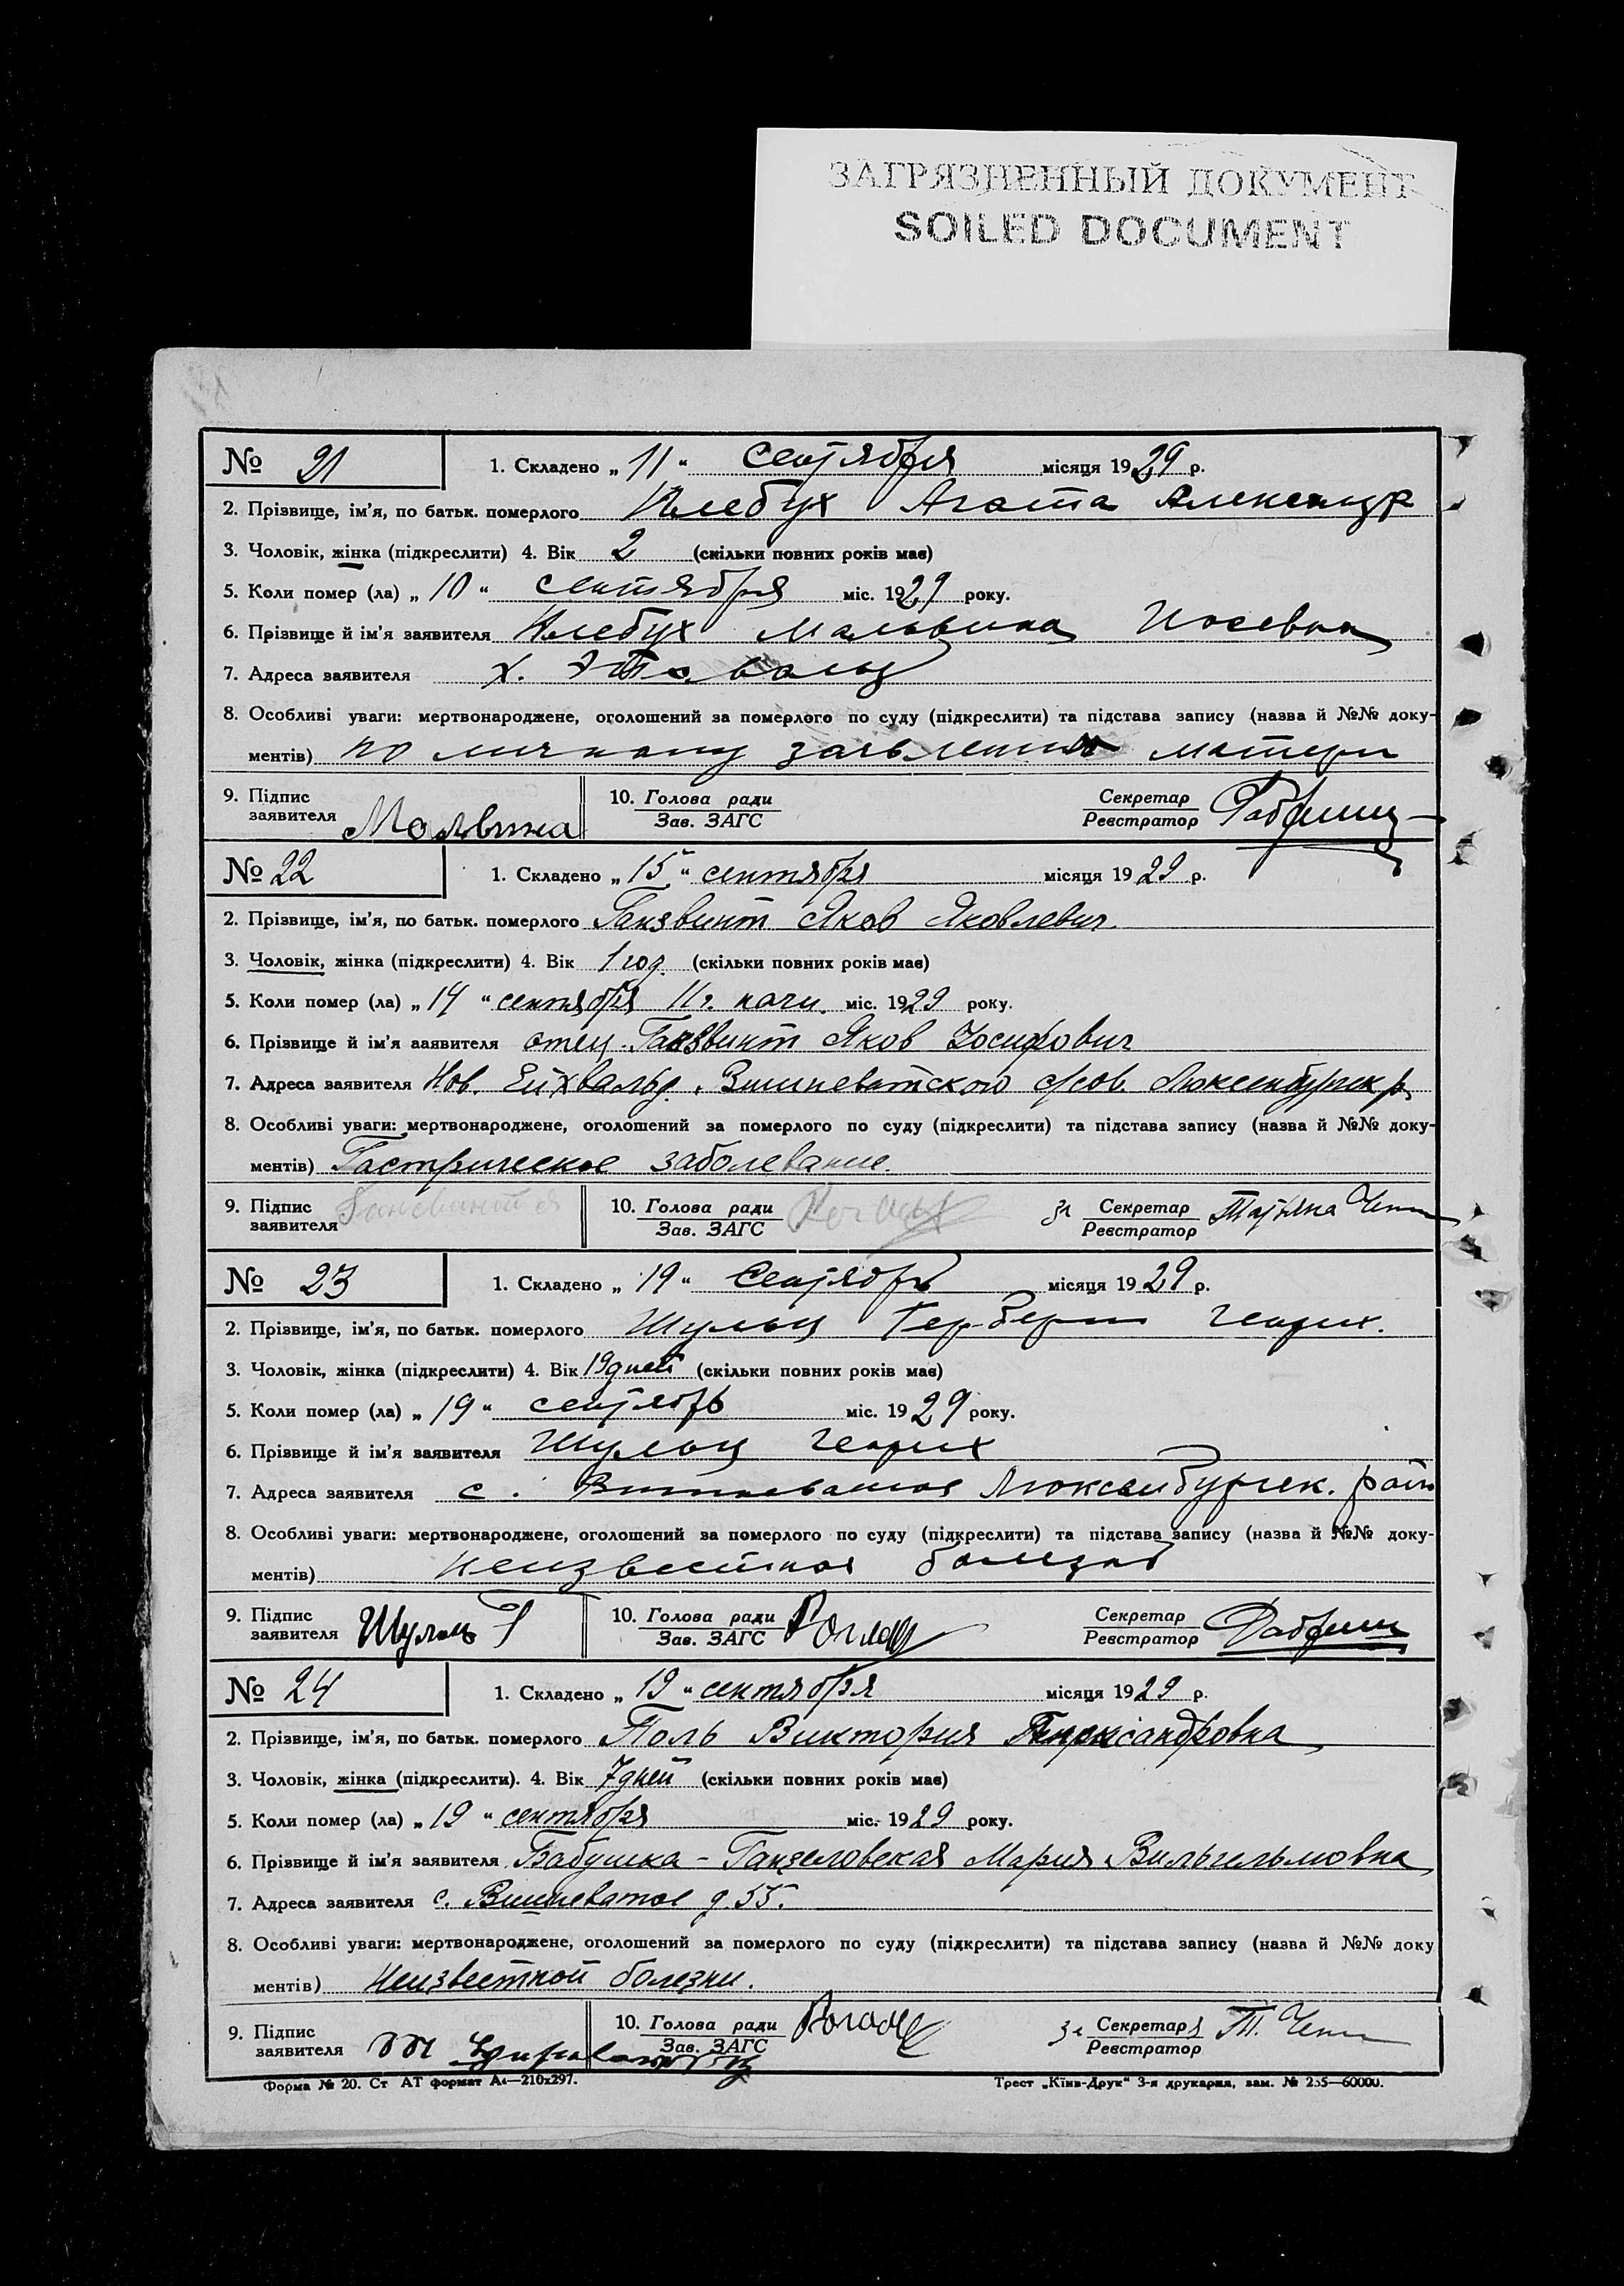 ЗАГРЯЗНЕННЫЙ ДОКУМЕНТ
SOILED DOCUMENT
№ 21 1. Складено „ 11 “ сентября місяця 1929 р.
2. Прізвище, ім'я, по батьк. померлого Клебух Агата Александр
3. Чоловік, жінка (підкреслити) 4. Вік 2 (скільки повних років має)
5. Коли помер (ла) „ 10 “ сентября міс. 1929 року.
6. Прізвище й ім'я заявителя Клебух Мальвина Иосевна
7. Адреса заявителя х.
8. Особливі уваги: мертвонароджене, оголошений за померлого по суду (підкреслити) та підстава запису (назва й №№ доку-
ментів) по личному заявлению матери
9. Підпис заявителя Малвина 10. Голова ради Зав. ЗАГС Секретар Реєстратор
№ 22 1. Складено „ 15 “ сентября місяця 1929 р.
2. Прізвище, ім'я, по батьк. померлого Ганзвинт Яков Яковлевич.
3. Чоловік, жінка (підкреслити) 4. Вік 1 год. (скільки повних років має)
5. Коли помер (ла) „ 14 “ сентября 11 ч. ночи. міс. 1929 року.
6. Прізвище й ім'я заявителя отец Ганзвинт Яков Иосифович
7. Адреса заявителя Нов. Ейхвальд. Вишневатского с/сов. Люксенбургск р.
8. Особливі уваги: мертвонароджене, оголошений за померлого по суду (підкреслити) та підстава запису (назва й №№ доку-
ментів) Гастрическое заболевание.
9. Підпис заявителя 10. Голова ради Зав. ЗАГС за Секретар Реєстратор Татьяна
№ 23 1. Складено „ 19 “ сентябрь місяця 1929 р.
2. Прізвище, ім'я, по батьк. померлого Шульц Герберт Генрих.
3. Чоловік, жінка (підкреслити) 4. Вік 19 дней (скільки повних років має)
5. Коли помер (ла) „ 19 “ сентябрь міс. 1929 року.
6. Прізвище й ім'я заявителя Шульц Генрих
7. Адреса заявителя с. Вишневатое Люксенбургск. район
8. Особливі уваги: мертвонароджене, оголошений за померлого по суду (підкреслити) та підстава запису (назва й №№ доку-
ментів) неизвестная болезнь
9. Підпис заявителя Шульц Г 10. Голова ради Зав. ЗАГС Секретар Реєстратор
№ 24 1. Складено „ 19 “ сентября місяця 1929 р.
2. Прізвище, ім'я, по батьк. померлого Поль Виктория Александровна
3. Чоловік, жінка (підкреслити). 4. Вік 7 дней (скільки повних років має)
5. Коли помер (ла) „ 19 “ сентября міс. 1929 року.
6. Прізвище й ім'я заявителя Бабушка - Ганзеловская Мария Вильгельмовна
7. Адреса заявителя с. Вишневатое д. 55.
8. Особливі уваги: мертвонароджене, оголошений за померлого по суду (підкреслити) та підстава запису (назва й №№ доку
ментів) Неизвестной болезни.
9. Підпис заявителя 10. Голова ради Зав. ЗАГС за Секретар Реєстратор Т.
Форма № 20. Ст АТ формат А4—210x297. Трест „Київ-Друк“ 3-я друкарня, зам. № 255—60000.